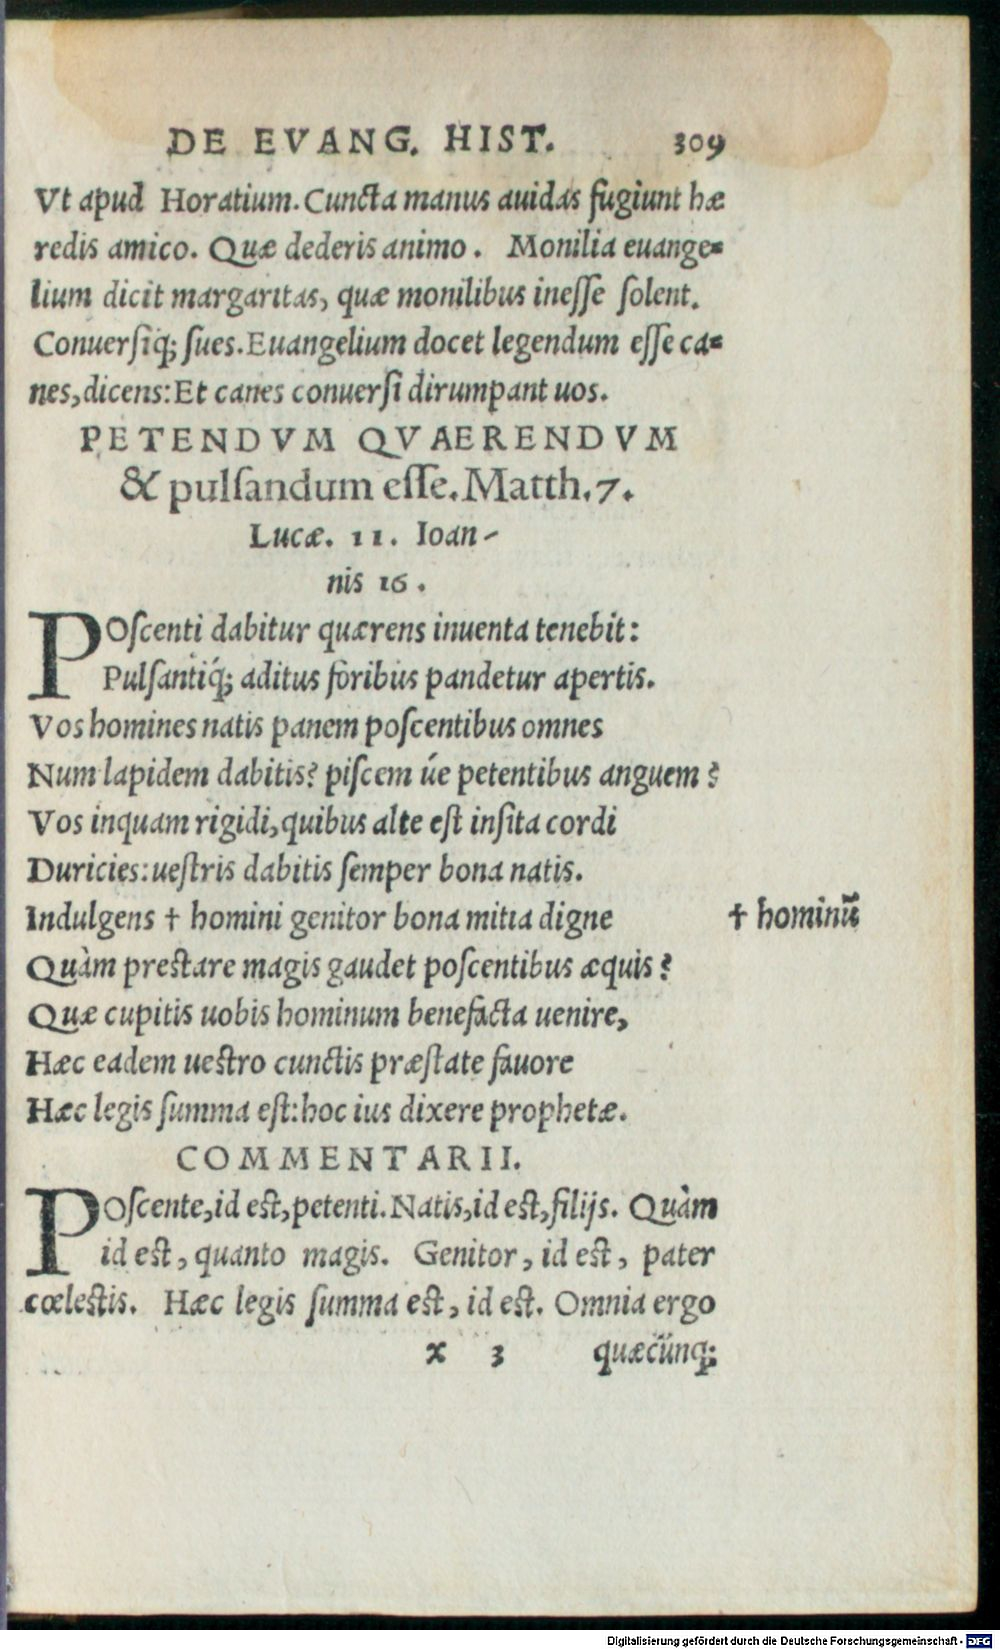 DE EVANG. HIST. 309
Vt apud Horatium. Cuncta manus auidas fugiunt hæ
redis amico. Quæ dederis animo. Monilia euange-
lium dicit margaritas, quæ monilibus inesse solent.
Conuersiq; sues. Euangelium docet legendum esse ca-
nes, dicens: Et canes conuersi dirumpant uos.
PETENDVM QVAERENDVM
& pulsandum esse. Matth. 7.
Lucæ. 11. Ioan-
nis 16.
POscenti dabitur quærens inuenta tenebit:
Pulsantiq́; aditus foribus pandetur apertis.
Vos homines natis panem poscentibus omnes
Num lapidem dabitis? piscem úe petentibus anguem?
Vos inquam rigidi, quibus alte est insita cordi
Duricies: uestris dabitis semper bona natis.
Indulgens † homini genitor bona mitia digne † hominū
Quàm prestare magis gaudet poscentibus æquis?
Quæ cupitis uobis hominum benefacta uenire,
Hæc eadem uestro cunctis præstate fauore
Hæc legis summa est: hoc ius dixere prophetæ.
COMMENTARII.
POscente, id est, petenti. Natis, id est, filijs. Quàm
id est, quanto magis. Genitor, id est, pater
cœlestis. Hæc legis summa est, id est. Omnia ergo
x 3 quæcũnq;
Digitalisierung gefördert durch die Deutsche Forschungsgemeinschaft - DFG